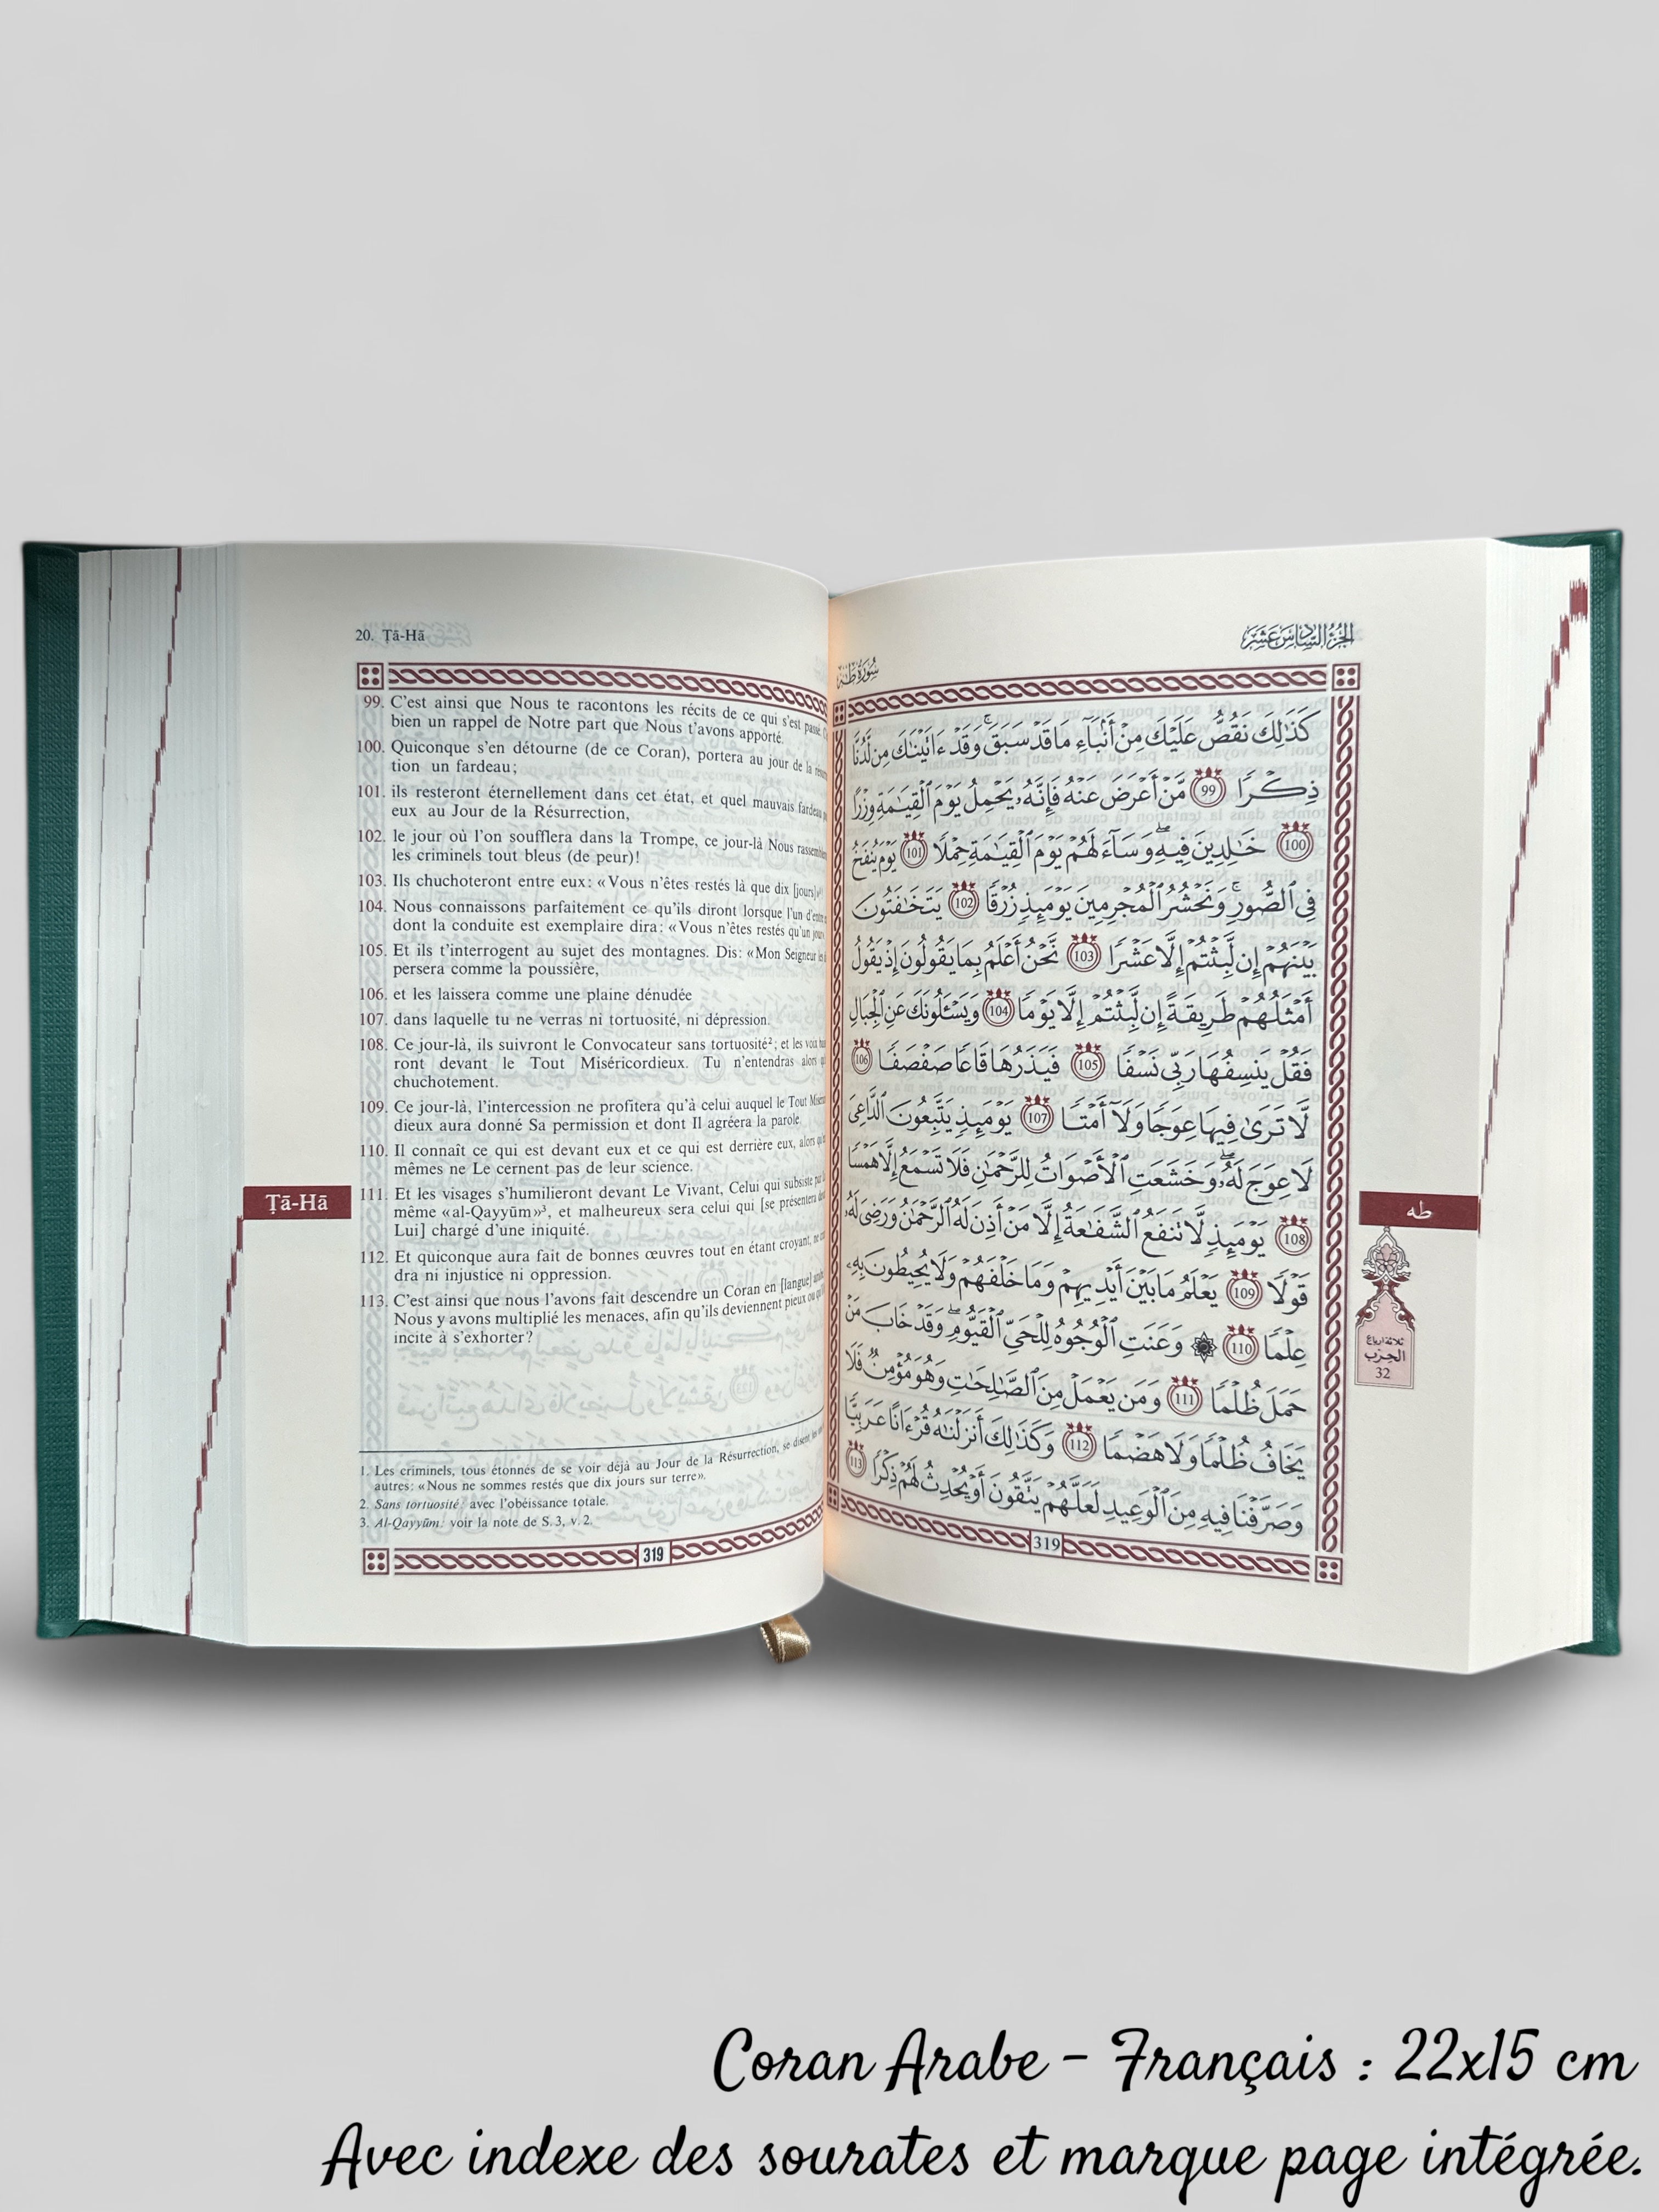 20. Ṭā-Hā
99. C'est ainsi que Nous te racontons les récits de ce qui s'est passé.
bien un rappel de Notre part que Nous t'avons apporté.
100. Quiconque s'en détourne (de ce Coran), portera au jour de la
tion un fardeau;
101. ils resteront éternellement dans cet état, et quel mauvais fardeau
eux au Jour de la Résurrection,
102. le jour où l'on soufflera dans la Trompe, ce jour-là Nous
les criminels tout bleus (de peur)!
103. Ils chuchoteront entre eux: «Vous n'êtes restés là que dix [jours]»
104. Nous connaissons parfaitement ce qu'ils diront lorsque l'un
dont la conduite est exemplaire dira: «Vous n'êtes restés qu'un
105. Et ils t'interrogent au sujet des montagnes. Dis: «Mon Seigneur
persera comme la poussière,
106. et les laissera comme une plaine dénudée
107. dans laquelle tu ne verras ni tortuosité, ni dépression.
108. Ce jour-là, ils suivront le Convocateur sans tortuosité²; et les voix
ront devant le Tout Miséricordieux. Tu n'entendras alors
chuchotement.
109. Ce jour-là, l'intercession ne profitera qu'à celui auquel le Tout
dieux aura donné Sa permission et dont Il agréera la parole.
110. Il connaît ce qui est devant eux et ce qui est derrière eux, alors
mêmes ne Le cernent pas de leur science.
111. Et les visages s'humilieront devant Le Vivant, Celui qui subsiste
même «al-Qayyūm»³, et malheureux sera celui qui [se présentera
Lui] chargé d'une iniquité.
112. Et quiconque aura fait de bonnes œuvres tout en étant croyant,
dra ni injustice ni oppression.
113. C'est ainsi que nous l'avons fait descendre un Coran en [langue]
Nous y avons multiplié les menaces, afin qu'ils deviennent pieux ou
incite à s'exhorter?
Ṭā-Hā
1. Les criminels, tous étonnés de se voir déjà au Jour de la Résurrection, se disent
autres: «Nous ne sommes restés que dix jours sur terre».
2. Sans tortuosité: avec l'obéissance totale.
3. Al-Qayyūm: voir la note de S. 3, v. 2.
319
الجزء السادس عشر
سورة طه
كَذَٰلِكَ نَقُصُّ عَلَيْكَ مِنْ أَنۢبَآءِ مَا قَدْ سَبَقَ ۚ وَقَدْ ءَاتَيْنَٰكَ مِن لَّدُنَّا
ذِكْرًا 99 مَّنْ أَعْرَضَ عَنْهُ فَإِنَّهُۥ يَحْمِلُ يَوْمَ ٱلْقِيَٰمَةِ وِزْرًا
100 خَٰلِدِينَ فِيهِ ۖ وَسَآءَ لَهُمْ يَوْمَ ٱلْقِيَٰمَةِ حِمْلًا 101 يَوْمَ يُنفَخُ
فِى ٱلصُّورِ ۚ وَنَحْشُرُ ٱلْمُجْرِمِينَ يَوْمَئِذٍ زُرْقًا 102 يَتَخَٰفَتُونَ
بَيْنَهُمْ إِن لَّبِثْتُمْ إِلَّا عَشْرًا 103 نَّحْنُ أَعْلَمُ بِمَا يَقُولُونَ إِذْ يَقُولُ
أَمْثَلُهُمْ طَرِيقَةً إِن لَّبِثْتُمْ إِلَّا يَوْمًا 104 وَيَسْـَٔلُونَكَ عَنِ ٱلْجِبَالِ
فَقُلْ يَنسِفُهَا رَبِّى نَسْفًا 105 فَيَذَرُهَا قَاعًا صَفْصَفًا 106
لَّا تَرَىٰ فِيهَا عِوَجًا وَلَآ أَمْتًا 107 يَوْمَئِذٍ يَتَّبِعُونَ ٱلدَّاعِىَ
لَا عِوَجَ لَهُۥ ۖ وَخَشَعَتِ ٱلْأَصْوَاتُ لِلرَّحْمَٰنِ فَلَا تَسْمَعُ إِلَّا هَمْسًا
108 يَوْمَئِذٍ لَّا تَنفَعُ ٱلشَّفَٰعَةُ إِلَّا مَنْ أَذِنَ لَهُ ٱلرَّحْمَٰنُ وَرَضِىَ لَهُۥ
قَوْلًا 109 يَعْلَمُ مَا بَيْنَ أَيْدِيهِمْ وَمَا خَلْفَهُمْ وَلَا يُحِيطُونَ بِهِۦ
عِلْمًا 110 ۞ وَعَنَتِ ٱلْوُجُوهُ لِلْحَىِّ ٱلْقَيُّومِ ۖ وَقَدْ خَابَ مَنْ
حَمَلَ ظُلْمًا 111 وَمَن يَعْمَلْ مِنَ ٱلصَّٰلِحَٰتِ وَهُوَ مُؤْمِنٌ فَلَا
يَخَافُ ظُلْمًا وَلَا هَضْمًا 112 وَكَذَٰلِكَ أَنزَلْنَٰهُ قُرْءَانًا عَرَبِيًّا
وَصَرَّفْنَا فِيهِ مِنَ ٱلْوَعِيدِ لَعَلَّهُمْ يَتَّقُونَ أَوْ يُحْدِثُ لَهُمْ ذِكْرًا 113
طه
ثلاثة ارباع
الحزب
32
319
Coran Arabe - Français : 22x15 cm
Avec indexe des sourates et marque page intégrée.